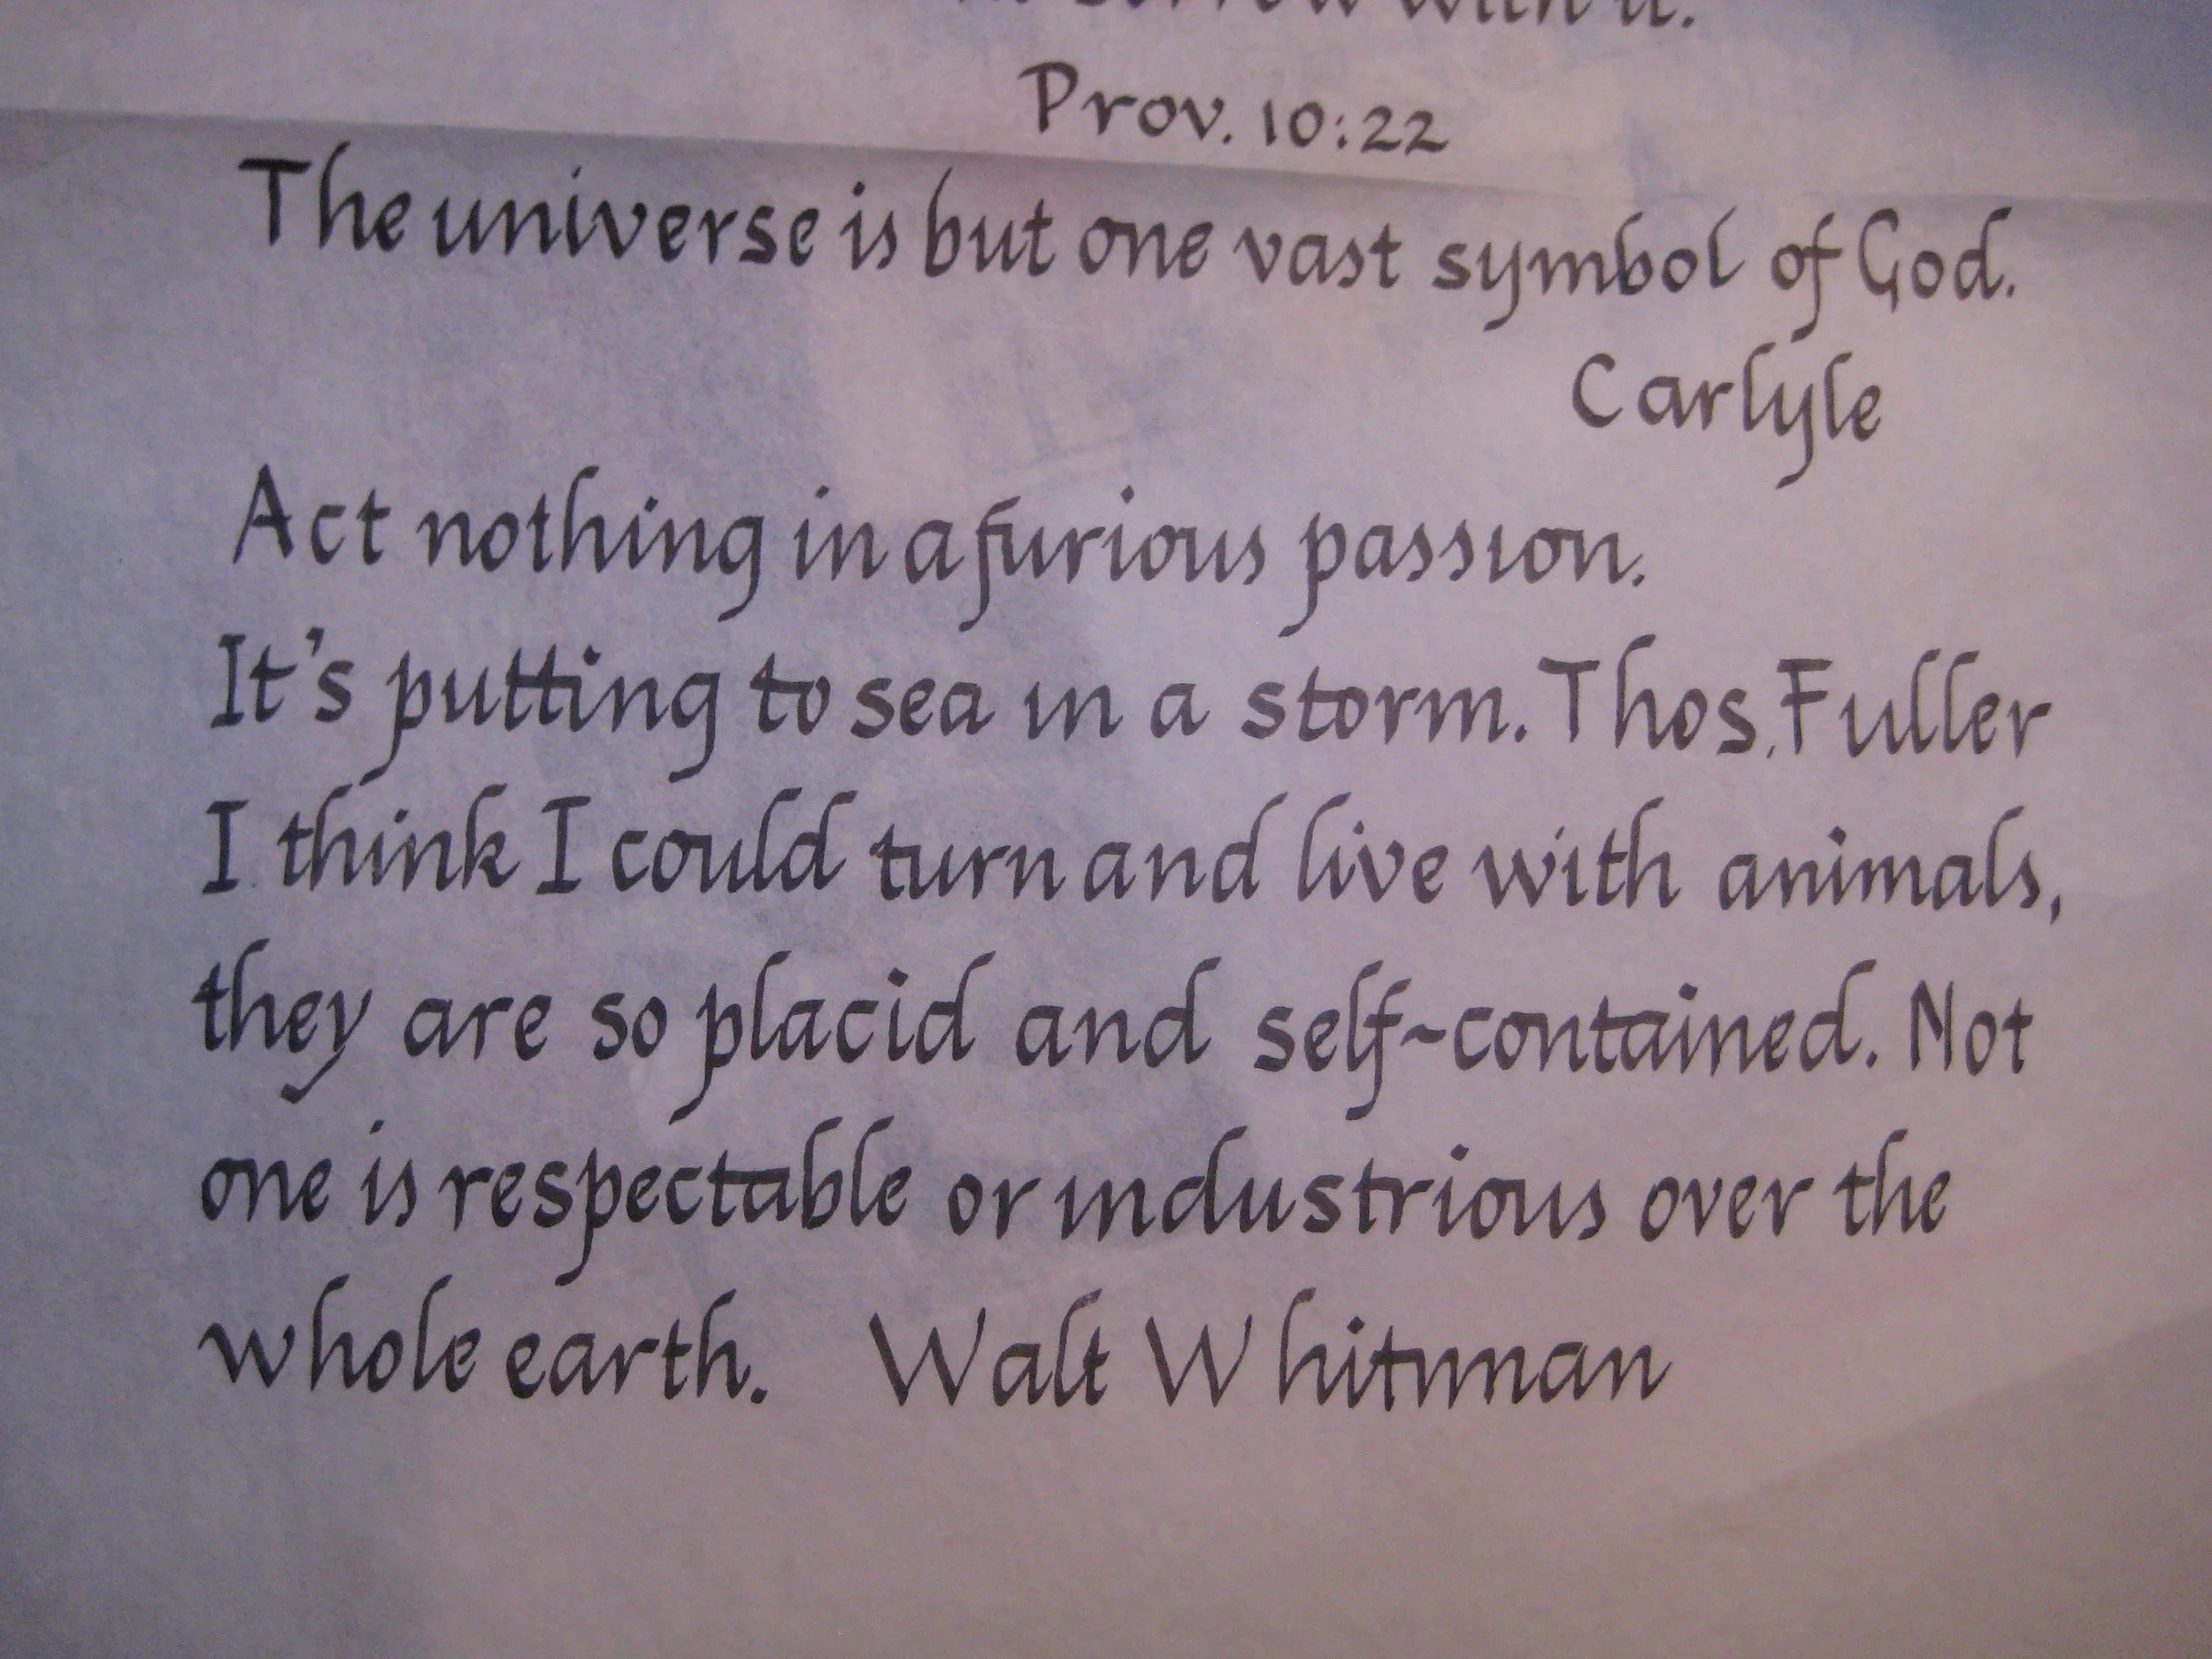 sorrow with it.
Prov. 10:22
The universe is but one vast symbol of God.
Carlyle
Act nothing in a furious passion.
It's putting to sea in a storm. Thos. Fuller
I think I could turn and live with animals,
they are so placid and self-contained. Not
one is respectable or industrious over the
whole earth. Walt Whitman